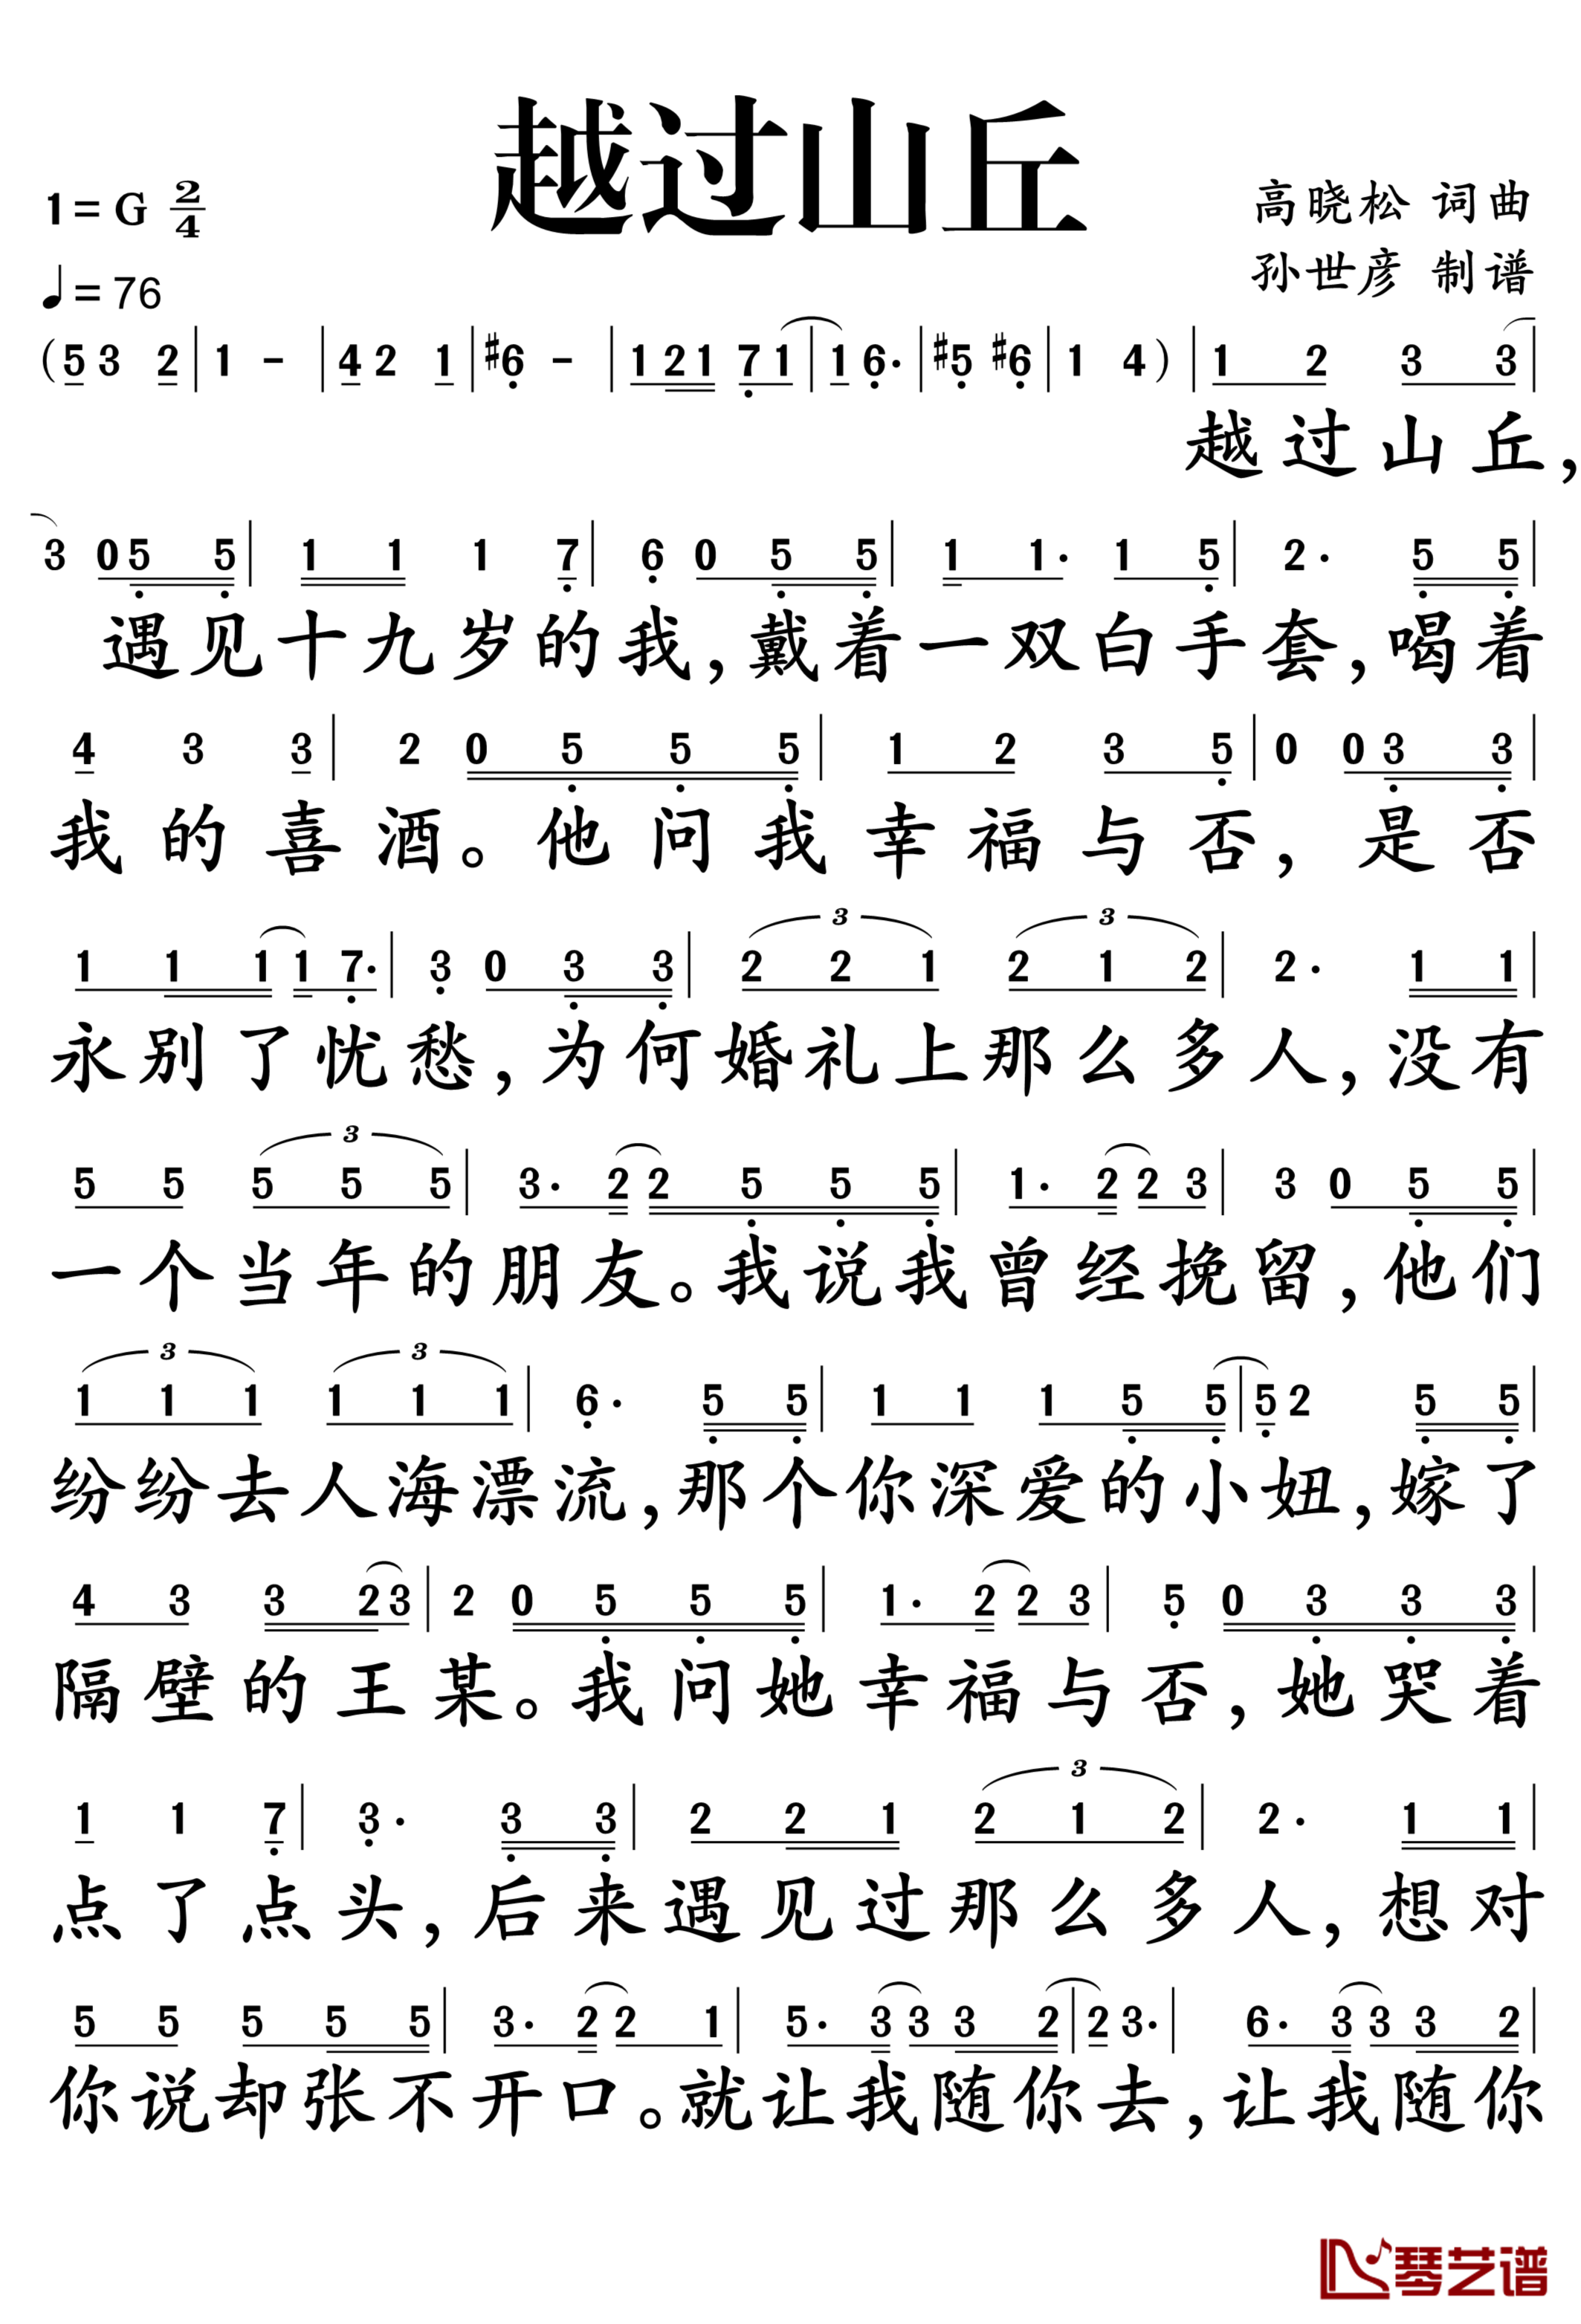 越过山丘
1=G 2/4
高晓松 词曲
♩=76
孙世彦 制谱
(5 3 2 | 1 - | 4 2 1 | #6 - | 1 2 1 7 1 | 1 6· | #5 #6 | 1 4) | 1 2 3 3 |
越过山丘，
3 0 5 5 | 1 1 1 7 | 6 0 5 5 | 1 1· 1 5 | 2· 5 5 |
遇见十九岁的我，戴着一双白手套，喝着
4 3 3 | 2 0 5 5 5 | 1 2 3 5 | 0 0 3 3 |
我的喜酒。他问我幸福与否，是否
3 3
1 1 1 1 7· | 3 0 3 3 | 2 2 1 2 1 2 | 2· 1 1 |
永别了忧愁，为何婚礼上那么多人，没有
3
5 5 5 5 5 | 3· 2 2 5 5 5 | 1· 2 2 3 | 3 0 5 5 |
一个当年的朋友。我说我曾经挽留，他们
3 3
1 1 1 1 1 1 | 6· 5 5 | 1 1 1 5 5 | 5 2 5 5 |
纷纷去人海漂流，那个你深爱的小妞，嫁了
4 3 3 2 3 | 2 0 5 5 5 | 1· 2 2 3 | 5 0 3 3 3 |
隔壁的王某。我问她幸福与否，她哭着
3
1 1 7 | 3· 3 3 | 2 2 1 2 1 2 | 2· 1 1 |
点了点头，后来遇见过那么多人，想对
5 5 5 5 5 | 3· 2 2 1 | 5· 3 3 3 2 | 2 3· | 6· 3 3 3 2 |
你说却张不开口。就让我随你去，让我随你
琴艺谱